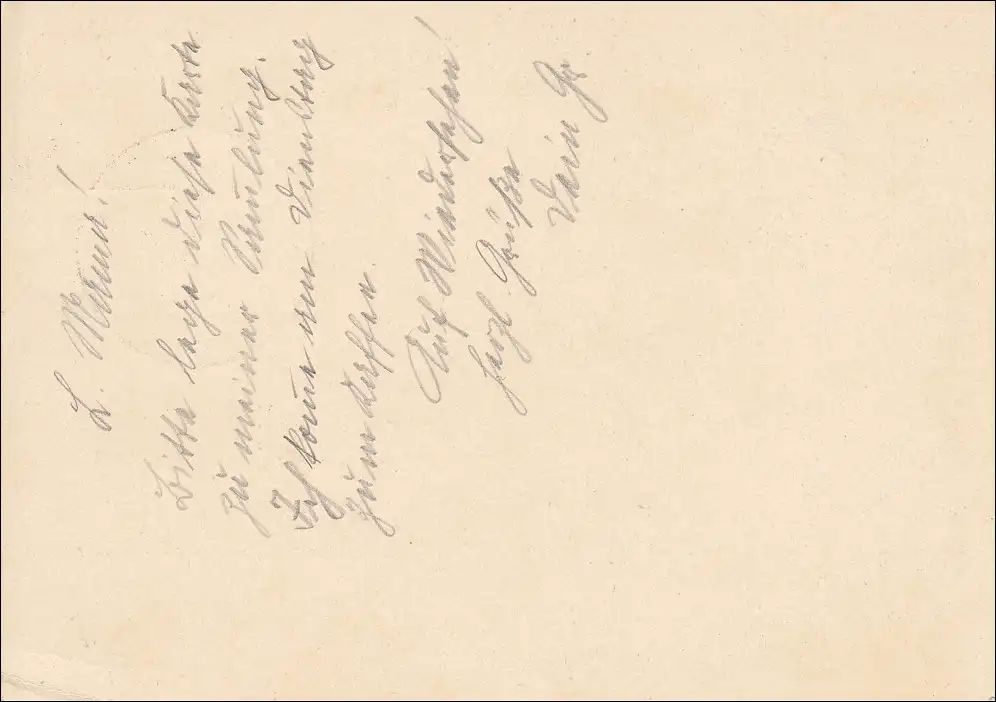 L. Mama!
Bitte lege diese Karte
zu meiner Samlung.
Ich komme am Dienstag
zum Kaffee.
Auf Wiedersehen!
herzl. Grüße
Dein